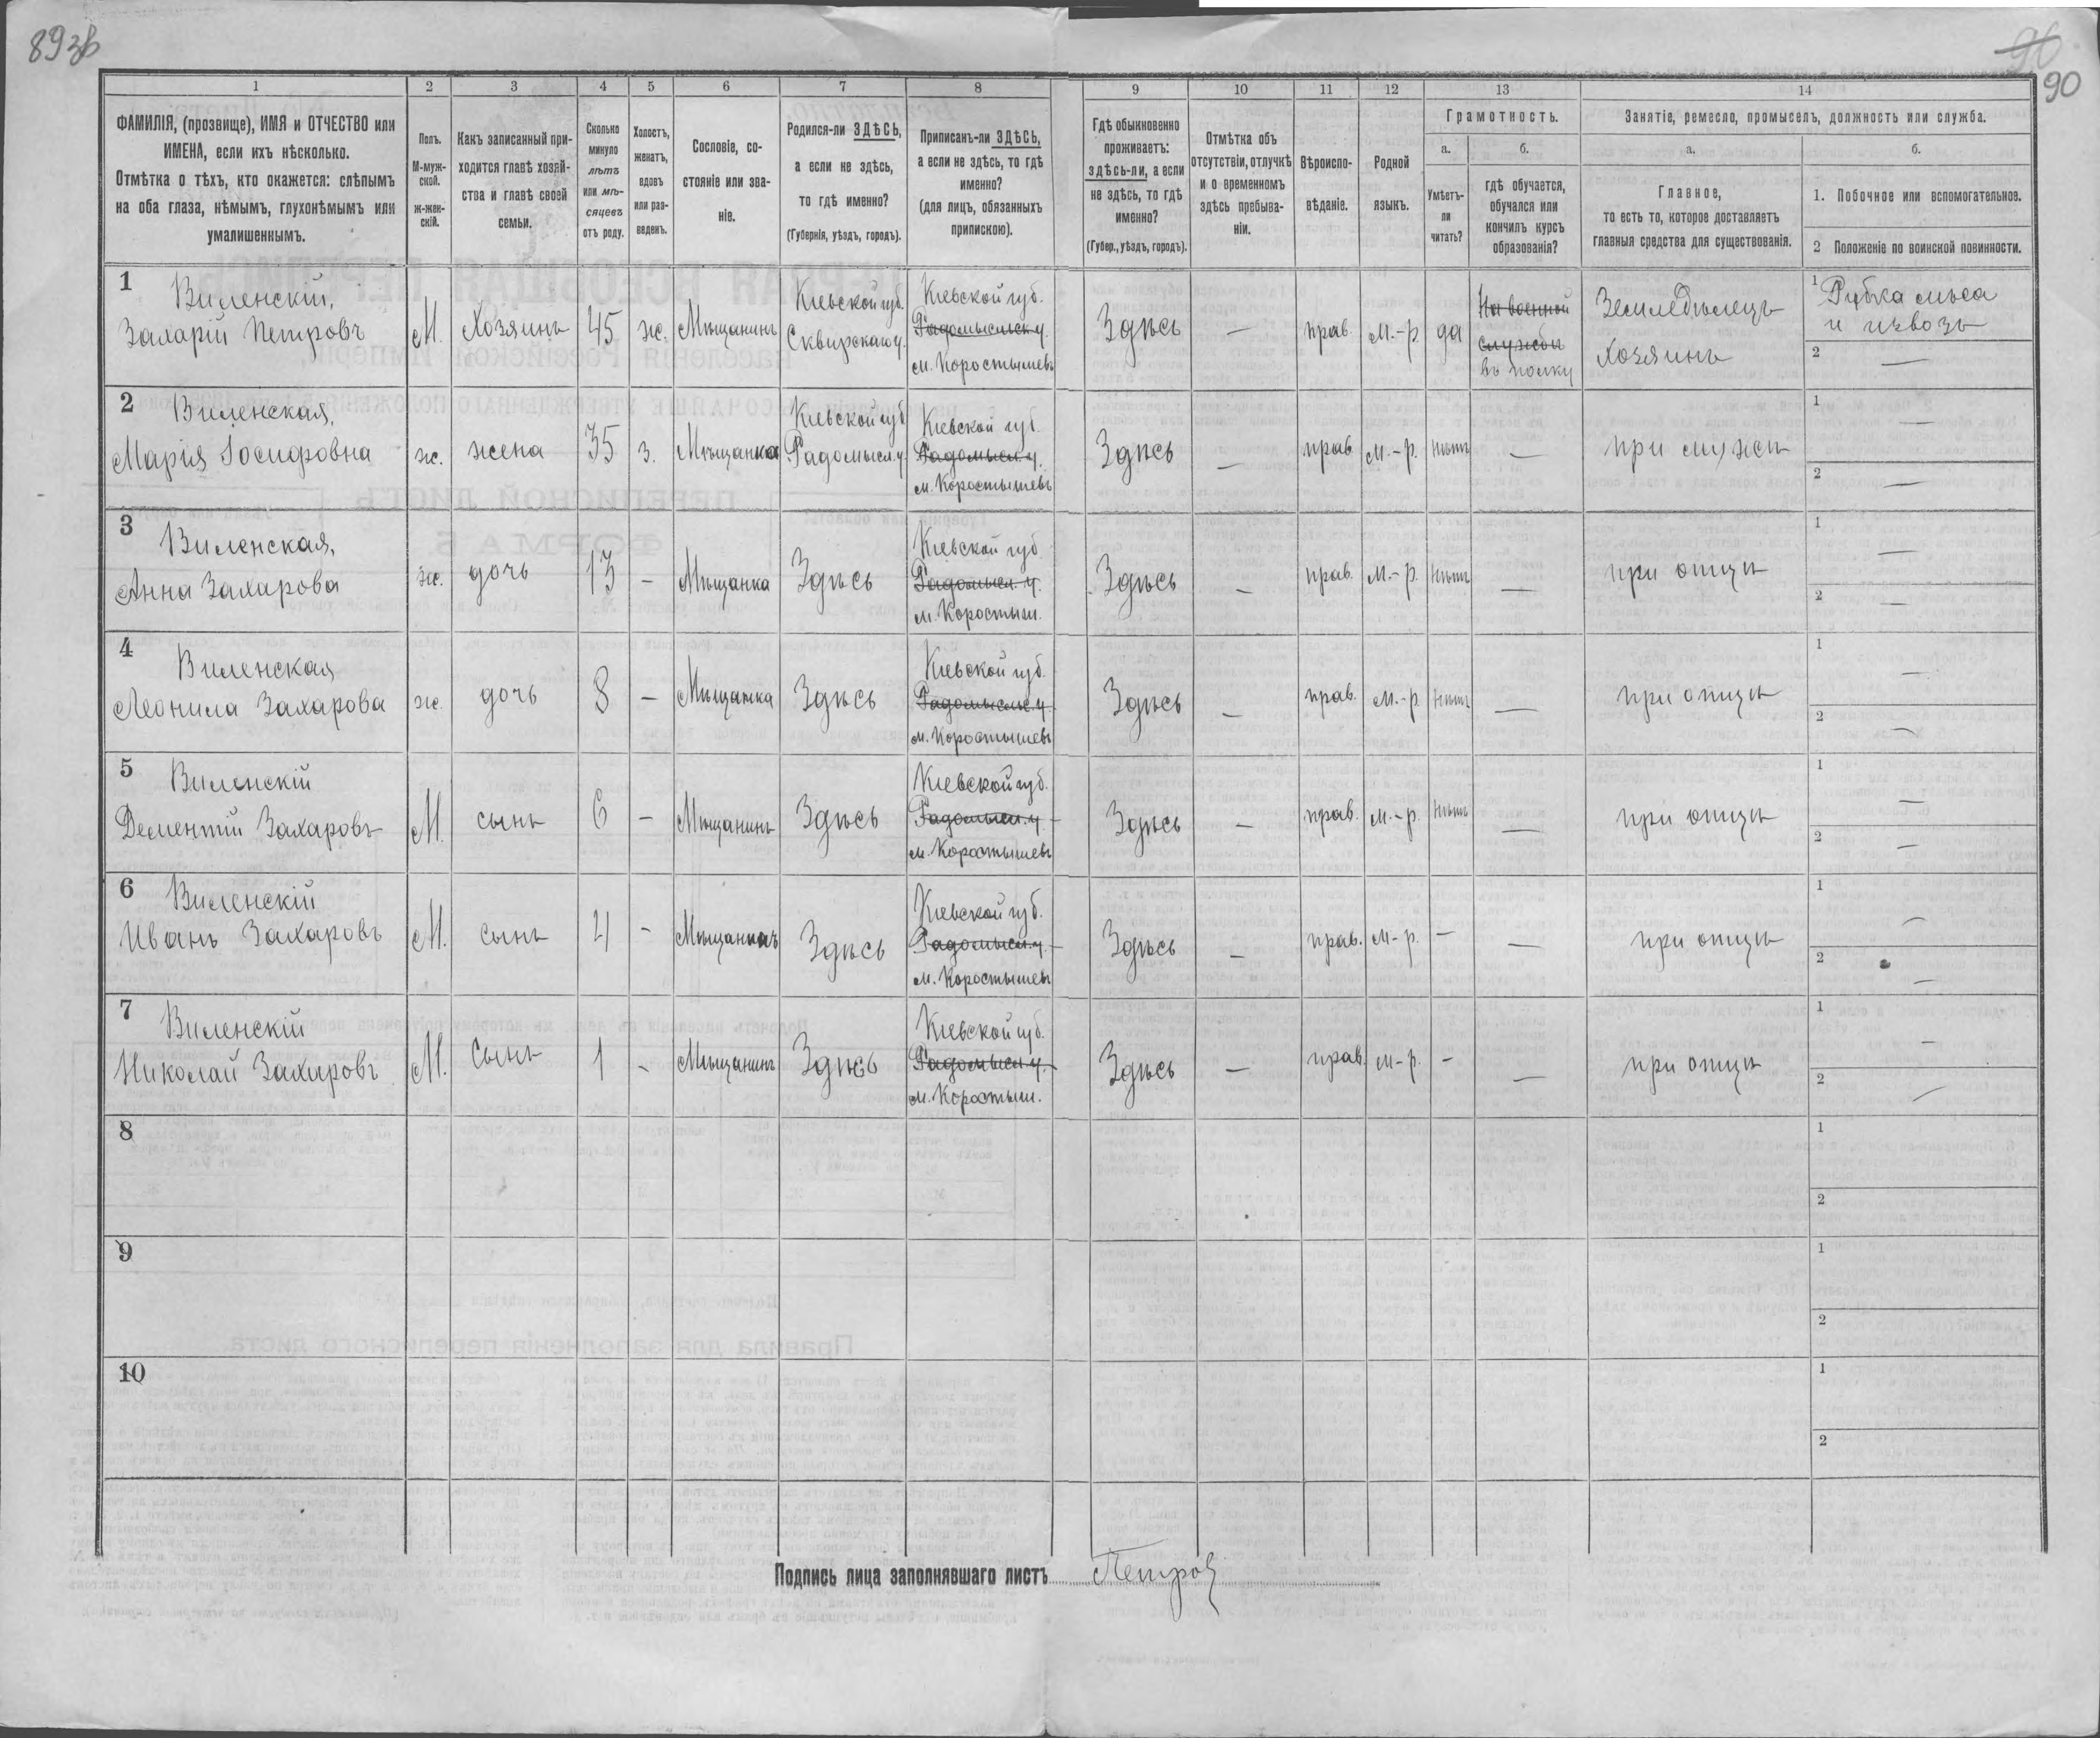 89зв
90
90
1
2
3
4
5
6
7
8
9
10
11
12
13
14
ФАМИЛІЯ, (прозвище), ИМЯ и ОТЧЕСТВО или
ИМЕНА, если ихъ нѣсколько.
Отмѣтка о тѣхъ, кто окажется: слѣпымъ
на оба глаза, нѣмымъ, глухонѣмымъ или
умалишеннымъ.
Полъ.
М-муж-
ской.
ж-жен-
скій.
Какъ записанный при-
ходится главѣ хозяй-
ства и главѣ своей
семьи.
Сколько
минуло
лѣтъ
или мѣ-
сяцевъ
отъ роду.
Холостъ,
женатъ,
вдовъ
или раз-
веденъ.
Сословіе, со-
стояніе или зва-
ніе.
Родился-ли ЗДѢСЬ,
а если не здѣсь,
то гдѣ именно?
(Губернія, уѣздъ, городъ).
Приписанъ-ли ЗДѢСЬ,
а если не здѣсь, то гдѣ
именно?
(для лицъ, обязанныхъ
припискою).
Гдѣ обыкновенно
проживаетъ:
здѣсь-ли, а если
не здѣсь, то гдѣ
именно?
(Губер., уѣздъ, городъ).
Отмѣтка объ
отсутствіи, отлучкѣ
и о временномъ
здѣсь пребыва-
ніи.
Вѣроиспо-
вѣданіе.
Родной
языкъ.
Грамотность.
а.
б.
Умѣетъ-
ли
читать?
гдѣ обучается,
обучался или
кончилъ курсъ
образованія?
Занятіе, ремесло, промыселъ, должность или служба.
а.
б.
Главное,
то есть то, которое доставляетъ
главныя средства для существованія.
1. Побочное или вспомогательное.
2 Положеніе по воинской повинности.
1
Виленскій,
Захарій Петровъ
М.
Хозяинъ
45
ж.
Мѣщанинъ
Кіевской губ.
Сквирскаго у.
Кіевской губ.
Радомысльск. у.
м. Коростышевъ
Здѣсь
—
прав.
м.-р.
да
На военной
службѣ
въ полку
Земледѣлецъ
Хозяинъ
1 Рубка лѣса
и извозъ
2 —
2
Виленская,
Марія Іосифовна
ж.
жена
35
з.
Мѣщанка
Кіевской губ.
Радомысл. у.
Кіевской губ.
Радомысл. у.
м. Коростышевъ
Здѣсь
—
прав.
м.-р.
нѣтъ
—
при мужѣ
1 —
2 —
3
Виленская,
Анна Захарова
ж.
дочь
13
-
Мѣщанка
Здѣсь
Кіевской губ.
Радомысл. у.
м. Коростыш.
Здѣсь
—
прав.
м.-р.
нѣтъ
—
при отцѣ
1 —
2 —
4
Виленская
Леонила Захарова
ж.
дочь
8
-
Мѣщанка
Здѣсь
Кіевской губ.
Радомысльс. у.
м. Коростышевъ
Здѣсь
—
прав.
м.-р.
нѣтъ
—
при отцѣ
1 —
2 —
5
Виленскій
Дементій Захаровъ
М.
сынъ
6
-
Мѣщанинъ
Здѣсь
Кіевской губ.
Радомысл. у.
м. Коростышевъ
Здѣсь
—
прав.
м.-р.
нѣтъ
—
при отцѣ
1 —
2 —
6
Виленскій
Иванъ Захаровъ
М.
сынъ
4
-
Мѣщанинъ
Здѣсь
Кіевской губ.
Радомысл. у.
м. Коростышев
Здѣсь
—
прав.
м-р.
-
—
при отцѣ
1 —
2 —
7
Виленскій
Николай Захаровъ
М.
Сынъ
1
-
Мѣщанинъ
Здѣсь
Кіевской губ.
Радомысл. у.
м. Коростыш.
Здѣсь
—
прав.
м-р.
-
—
при отцѣ
1 —
2 —
8
1
2
9
1
2
10
1
2
Подпись лица заполнявшаго листъ Петров